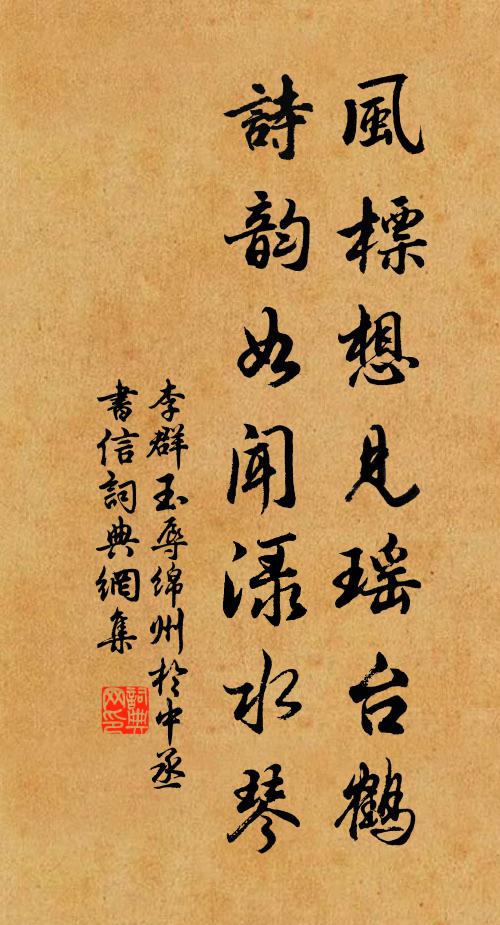 風標想見瑶台鶴
詩韵如闻渌水琴
李群玉辱绵州於中丞
書信詞典網集
詞典网印